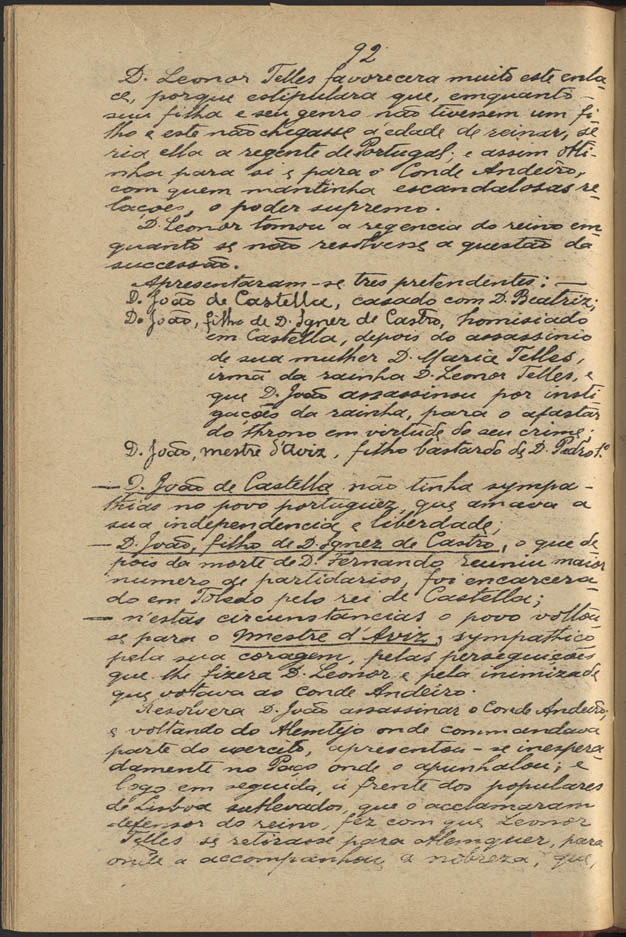 92
D. Leonor Telles favorecera muito este enla-
ce, porque estipulara que, emquanto
sua filha e seu genro não tivessem um fi-
lho e este não chegasse á edade de reinar, se-
ria ella a regente de Portugal; e assim obti-
nha para si e para o Conde Andeiro,
com quem mantinha escandalosas re-
lações, o poder supremo.
D. Leonor tomou a regencia do reino em-
quanto se não resolvesse a questão da
successão.
Apresentaram-se tres pretendentes:
D. João de Castella, casado com D. Beatriz;
D. João, filho de D. Ignez de Castro, homisiado
em Castella, depois do assassinio
de sua mulher D. Maria Telles,
irmã da rainha D. Leonor Telles, e
que D. João assassinou por insti-
gações da rainha, para o afastar
do throno em virtude do seu crime;
D. João, mestre d'Aviz, filho bastardo de D. Pedro 1.º
— D. João de Castella não tinha sympa-
thias no povo portuguez, que amava a
sua independencia e liberdade;
— D. João, filho de D. Ignez de Castro, o que de-
pois da morte de D. Fernando reuniu maior
numero de partidarios, foi encarcera-
do em Toledo pelo rei de Castella;
— n'estas circunstancias o povo voltou-
se para o Mestre d'Aviz, sympathico
pela sua coragem, pelas perseguições
que lhe fizera D. Leonor e pela inimizade
que votava ao Conde Andeiro.
Resolvera D. João assassinar o Conde Andeiro,
e voltando do Alemtejo onde commandava
parte do exercito, apresentou-se inespera-
damente no Paço onde o apunhalou; e
logo em seguida, á frente dos populares
de Lisboa sublevados, que o acclamaram
defensor do reino, fez com que Leonor
Telles se retirasse para Alemquer, para
onde a accompanhou a nobreza, que,